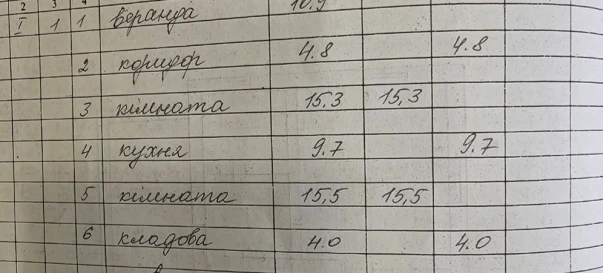 2 3 4
I 1 1 веранда 10.9
2 коридор 4.8 4.8
3 кімната 15,3 15,3
4 кухня 9.7 9.7
5 кімната 15,5 15,5
6 кладова 4.0 4.0